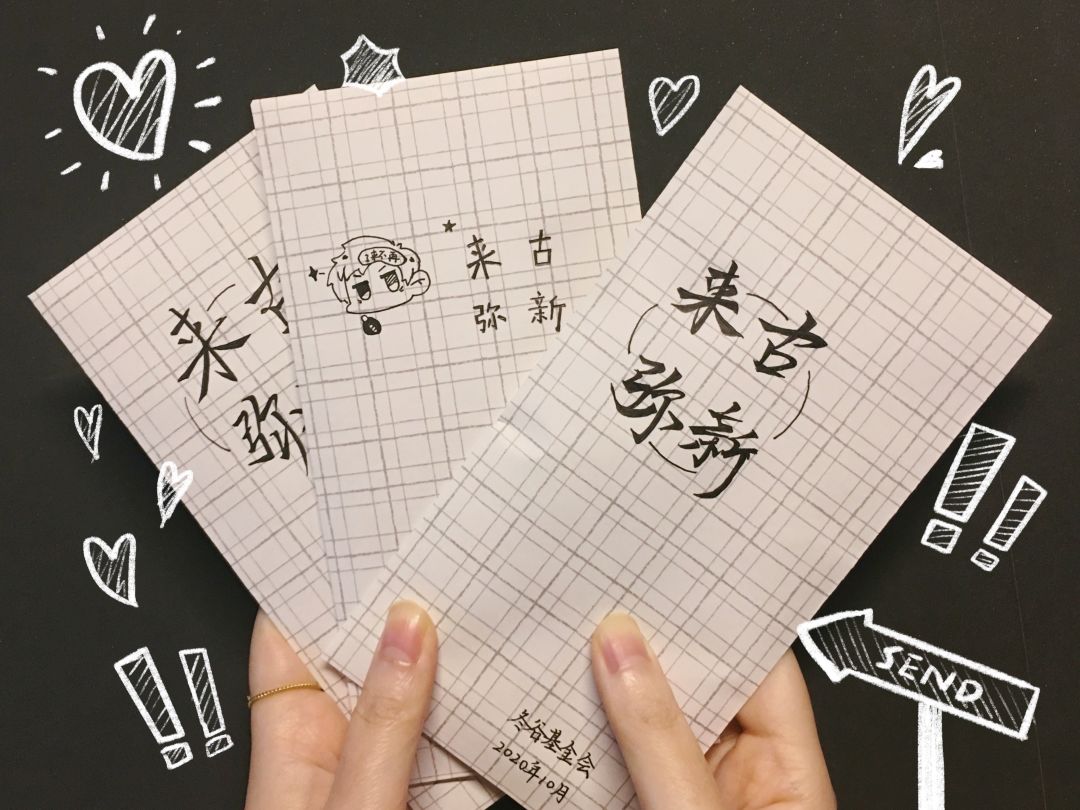 来
弥
来古
弥新
来古
弥新
冬谷基金会
2020年10月
SEND